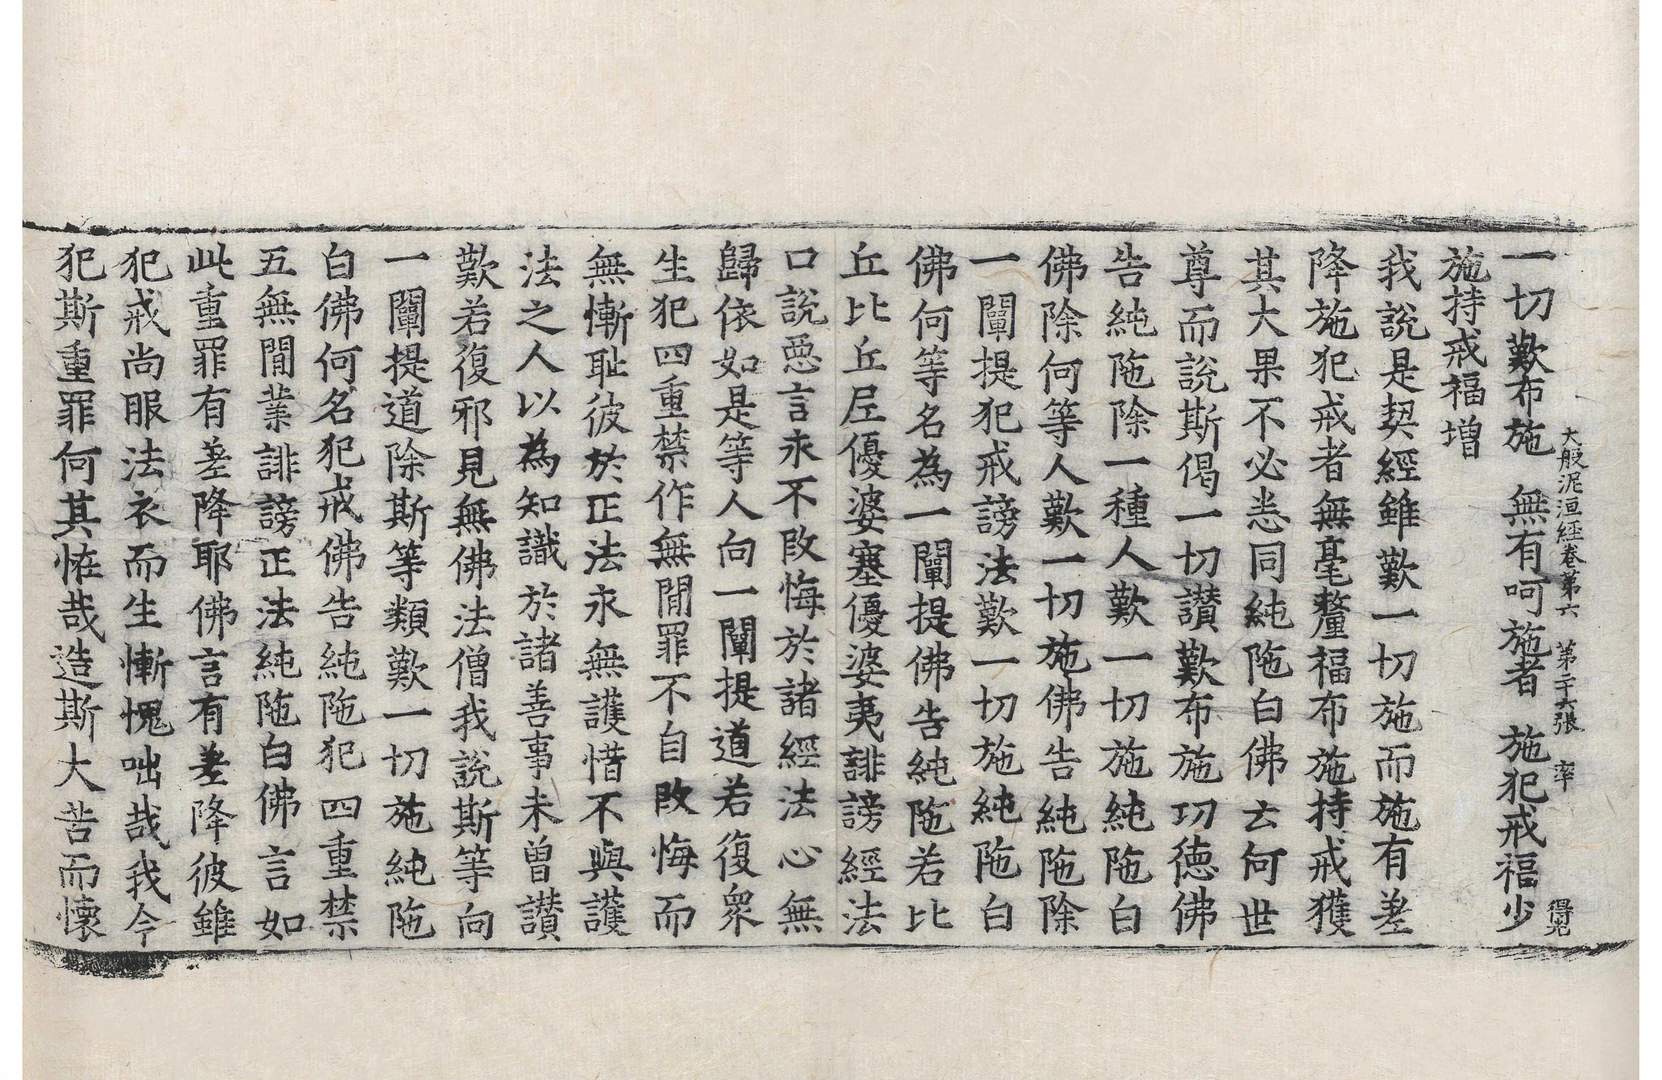 大般泥洹經卷第六 第二十六張 率 得光
一切歎布施 無有呵施者 施犯戒福少
施持戒福增
我說是契經雖歎一切施而施有差
降施犯戒者無毫釐福布施持戒獲
其大果不必悉同純陁白佛云何世
尊而說斯偈一切讃歎布施功德佛
告純陁除一種人歎一切施純陁白
佛除何等人歎一切施佛告純陁除
一闡提犯戒謗法歎一切施純陁白
佛何等名為一闡提佛告純陁若比
丘比丘尼優婆塞優婆夷誹謗經法
口說惡言永不改悔於諸經法心無
歸依如是等人向一闡提道若復衆
生犯四重禁作無間罪不自改悔而
無慚耻彼於正法永無護惜不與護
法之人以為知識於諸善事未曾讃
歎若復邪見無佛法僧我說斯等向
一闡提道除斯等類歎一切施純陁
白佛何名犯戒佛告純陁犯四重禁
五無間業誹謗正法純陁白佛言如
此重罪有差降耶佛言有差降彼雖
犯戒尚服法衣而生慚愧咄哉我今
犯斯重罪何其恠哉造斯大苦而懷